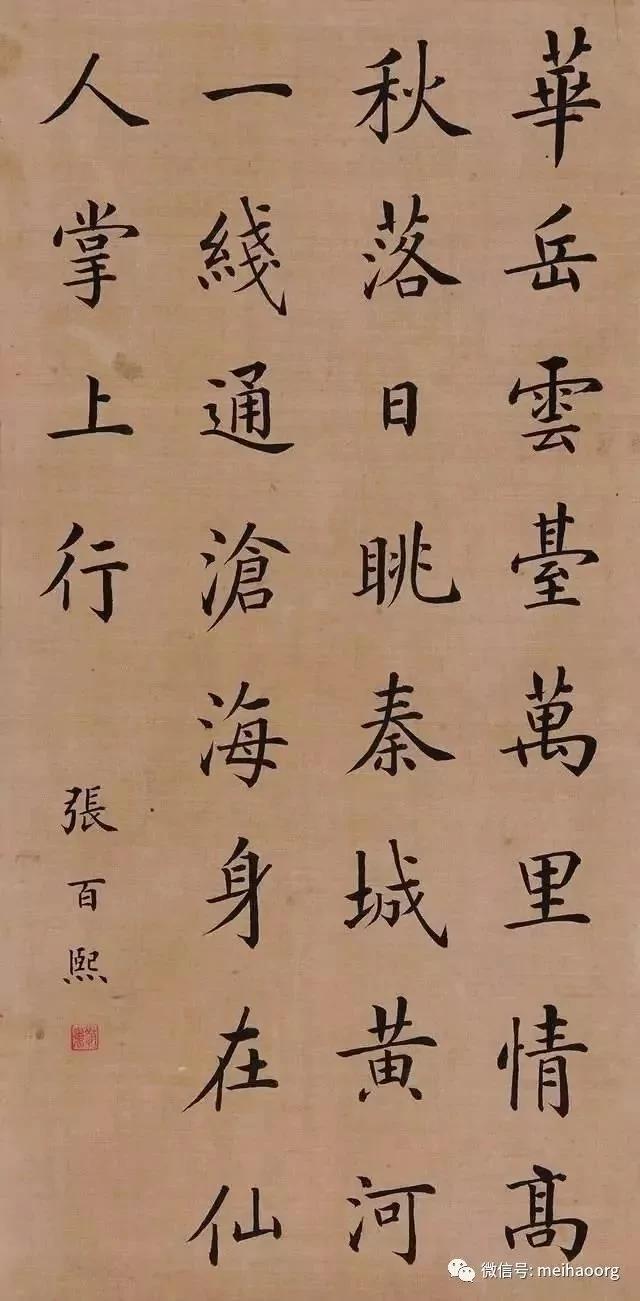 華岳雲臺萬里情高
秋落日眺秦城黄河
一綫通滄海身在仙
人掌上行
張百熙
微信号: meihaoorg